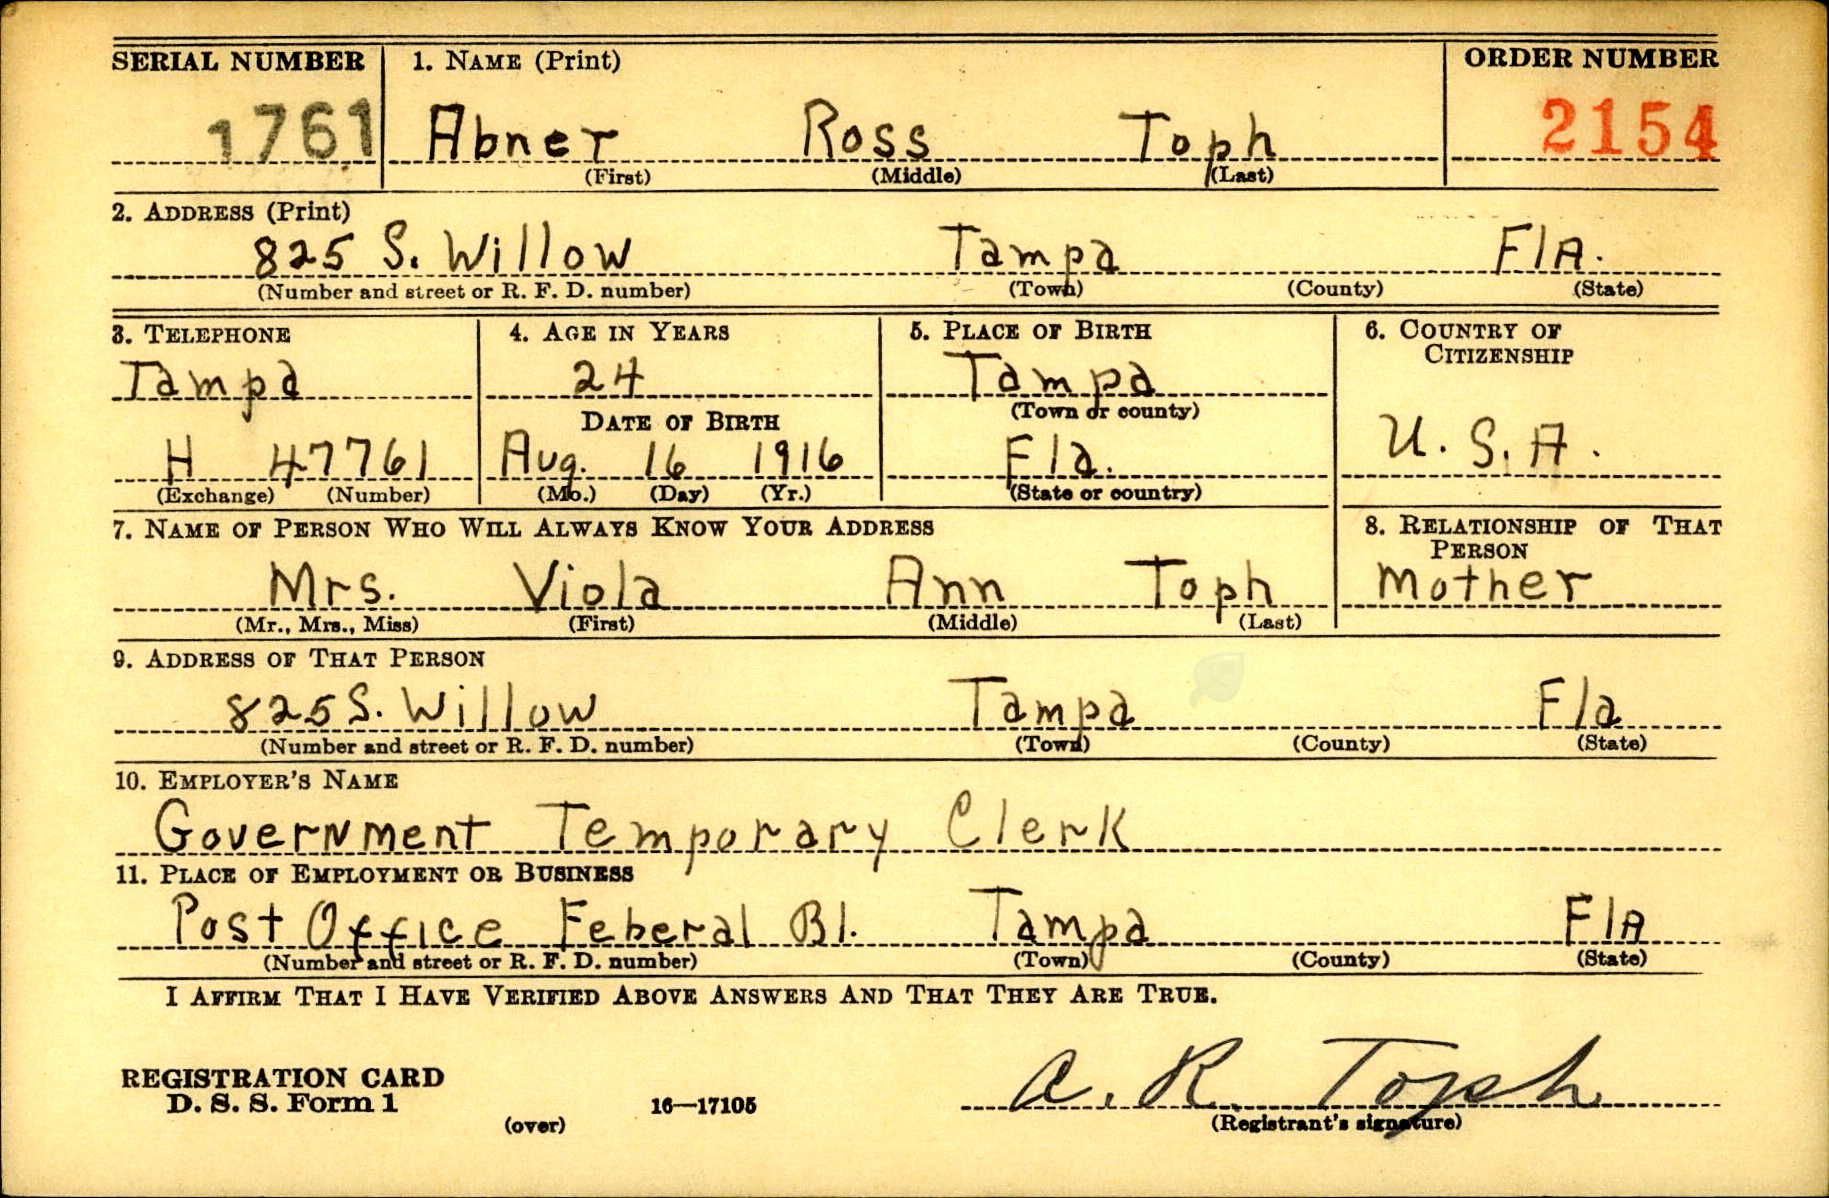 SERIAL NUMBER 1. NAME (Print) ORDER NUMBER
1761 Abner Ross Toph 2154
(First) (Middle) (Last)
2. ADDRESS (Print)
825 S. Willow Tampa FlA.
(Number and street or R. F. D. number) (Town) (County) (State)
3. TELEPHONE 4. AGE IN YEARS 5. PLACE OF BIRTH 6. COUNTRY OF
CITIZENSHIP
Tampa 24 Tampa
(Town or county)
DATE OF BIRTH
H 47761 Aug. 16 1916 Fla. U. S. A.
(Exchange) (Number) (Mo.) (Day) (Yr.) (State or country)
7. NAME OF PERSON WHO WILL ALWAYS KNOW YOUR ADDRESS 8. RELATIONSHIP OF THAT
PERSON
Mrs. Viola Ann Toph Mother
(Mr., Mrs., Miss) (First) (Middle) (Last)
9. ADDRESS OF THAT PERSON
825 S. Willow Tampa Fla
(Number and street or R. F. D. number) (Town) (County) (State)
10. EMPLOYER'S NAME
Government Temporary Clerk
11. PLACE OF EMPLOYMENT OR BUSINESS
Post Office Feberal Bl. Tampa FlA
(Number and street or R. F. D. number) (Town) (County) (State)
I AFFIRM THAT I HAVE VERIFIED ABOVE ANSWERS AND THAT THEY ARE TRUE.
REGISTRATION CARD
D. S. S. Form 1 16—17105 A. R. Toph
(over) (Registrant's signature)